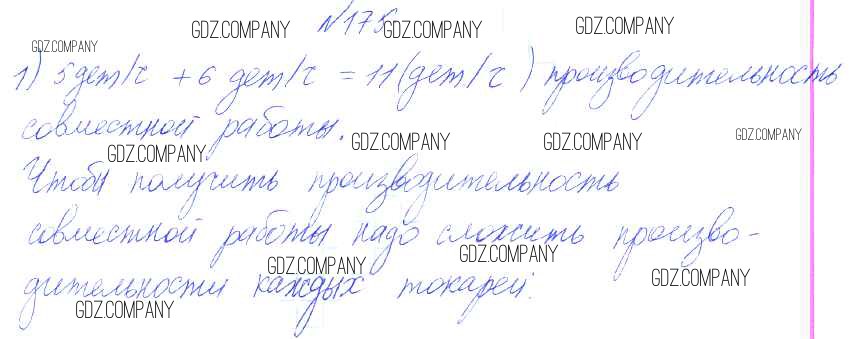 №175
1) 5 дет/ч + 6 дет/ч = 11 (дет/ч) производительность
совместной работы.
Чтобы получить производительность
совместной работы надо сложить произво-
дительности каждых токарей.
GDZ.COMPANY
GDZ.COMPANY
GDZ.COMPANY
GDZ.COMPANY
GDZ.COMPANY
GDZ.COMPANY
GDZ.COMPANY
GDZ.COMPANY
GDZ.COMPANY
GDZ.COMPANY
GDZ.COMPANY
GDZ.COMPANY